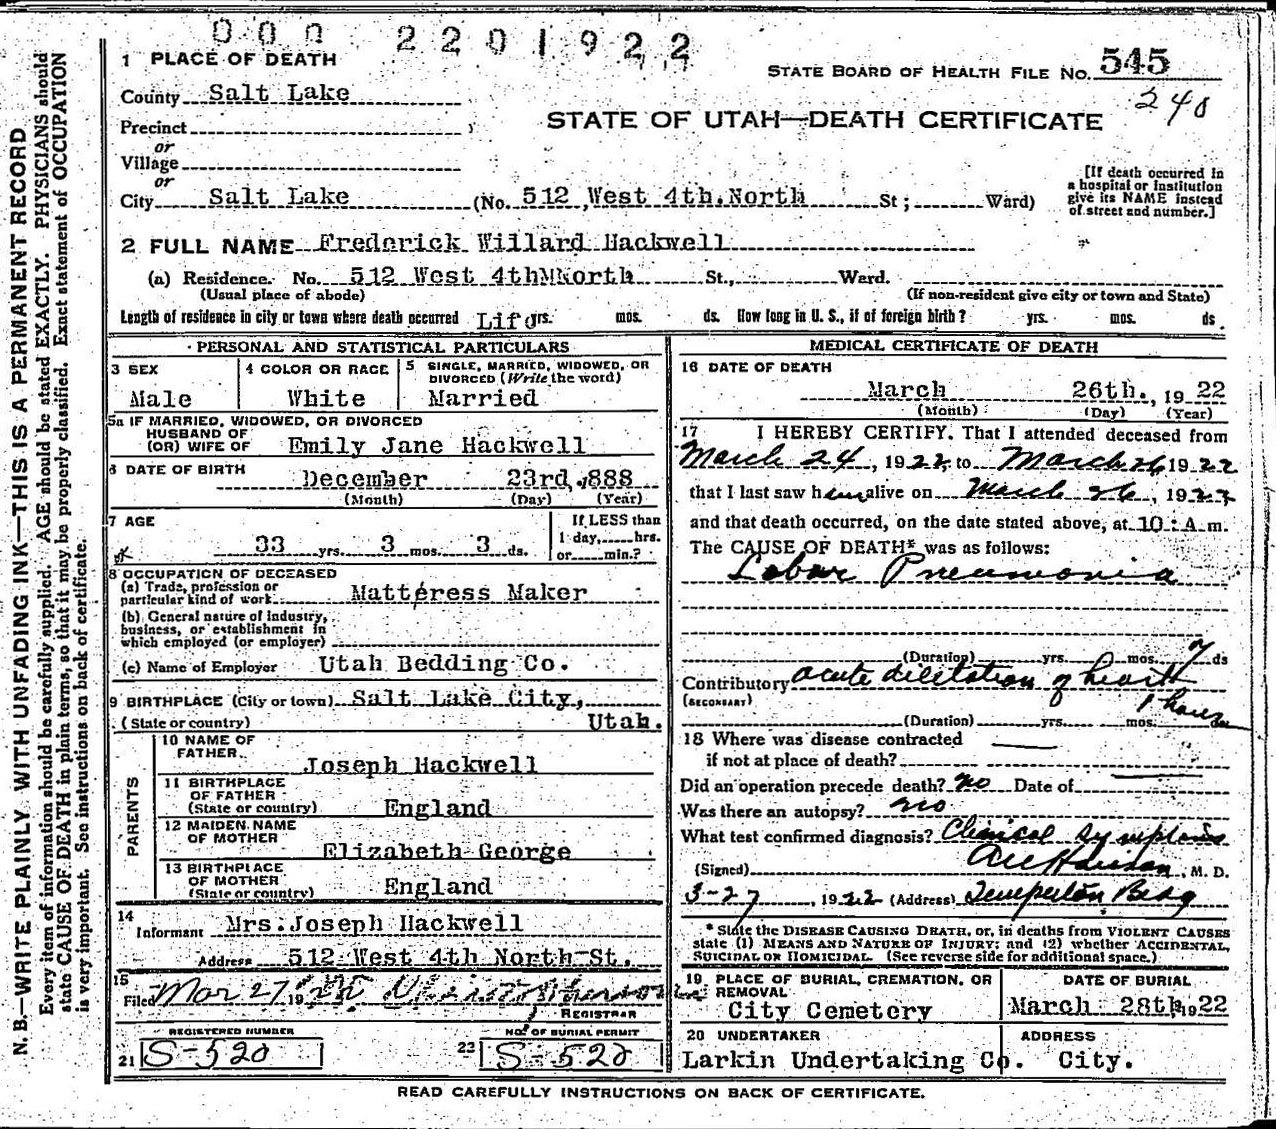 000 2201922
1 PLACE OF DEATH
STATE BOARD OF HEALTH FILE No. 545
County Salt Lake
240
Precinct
STATE OF UTAH—DEATH CERTIFICATE
or
Village
or
City Salt Lake (No. 512, West 4th. North St; Ward)
[If death occurred in
a hospital or institution
give its NAME instead
of street and number.]
2 FULL NAME Frederick Willard Hackwell
(a) Residence. No. 512 West 4thMNorth St., Ward.
(Usual place of abode) (If non-resident give city or town and State)
Length of residence in city or town where death occurred Life yrs. mos. ds. How long in U. S., if of foreign birth? yrs. mos. ds.
PERSONAL AND STATISTICAL PARTICULARS
3 SEX
Male
4 COLOR OR RACE
White
5 SINGLE, MARRIED, WIDOWED, OR
DIVORCED (Write the word)
Married
5a IF MARRIED, WIDOWED, OR DIVORCED
HUSBAND OF
(OR) WIFE OF Emily Jane Hackwell
6 DATE OF BIRTH
December 23rd, 1888
(Month) (Day) (Year)
7 AGE
33 yrs. 3 mos. 3 ds.
If LESS than
1 day, hrs.
or min.?
8 OCCUPATION OF DECEASED
(a) Trade, profession or
particular kind of work Mattress Maker
(b) General nature of industry,
business, or establishment in
which employed (or employer)
(c) Name of Employer Utah Bedding Co.
9 BIRTHPLACE (City or town) Salt Lake City,
(State or country) Utah.
PARENTS
10 NAME OF
FATHER Joseph Hackwell
11 BIRTHPLACE
OF FATHER
(State or country) England
12 MAIDEN NAME
OF MOTHER Elizabeth George
13 BIRTHPLACE
OF MOTHER
(State or country) England
14
Informant Mrs. Joseph Hackwell
Address 512 West 4th North St.
15
Filed Mar 27 1922
REGISTRAR
REGISTERED NUMBER
21 S-520
NO. OF BURIAL PERMIT
22 S-520
MEDICAL CERTIFICATE OF DEATH
16 DATE OF DEATH
March 26th., 1922
(Month) (Day) (Year)
17 I HEREBY CERTIFY, That I attended deceased from
March 24, 1922 to March 26 1922
that I last saw him alive on March 26, 1922
and that death occurred, on the date stated above, at 10: A m.
The CAUSE OF DEATH* was as follows:
Lobar Pneumonia
(Duration) yrs. mos. 7 ds
Contributory acute dilitation of heart
(SECONDARY) 1 hour
(Duration) yrs. mos.
18 Where was disease contracted
if not at place of death?
Did an operation precede death? no Date of
Was there an autopsy? no
What test confirmed diagnosis? Clinical symptoms
(Signed) M. D.
3-27, 1922 (Address) Templeton Bldg
* State the DISEASE CAUSING DEATH, or, in deaths from VIOLENT CAUSES
state (1) MEANS AND NATURE OF INJURY; and (2) whether ACCIDENTAL,
SUICIDAL OR HOMICIDAL. (See reverse side for additional space.)
19 PLACE OF BURIAL, CREMATION, OR
REMOVAL
City Cemetery
DATE OF BURIAL
March 28th, 1922
20 UNDERTAKER
Larkin Undertaking Co.
ADDRESS
City.
READ CAREFULLY INSTRUCTIONS ON BACK OF CERTIFICATE.
N. B.—WRITE PLAINLY, WITH UNFADING INK—THIS IS A PERMANENT RECORD
Every item of information should be carefully supplied. AGE should be stated EXACTLY. PHYSICIANS should
state CAUSE OF DEATH in plain terms, so that it may be properly classified. Exact statement of OCCUPATION
is very important. See instructions on back of certificate.